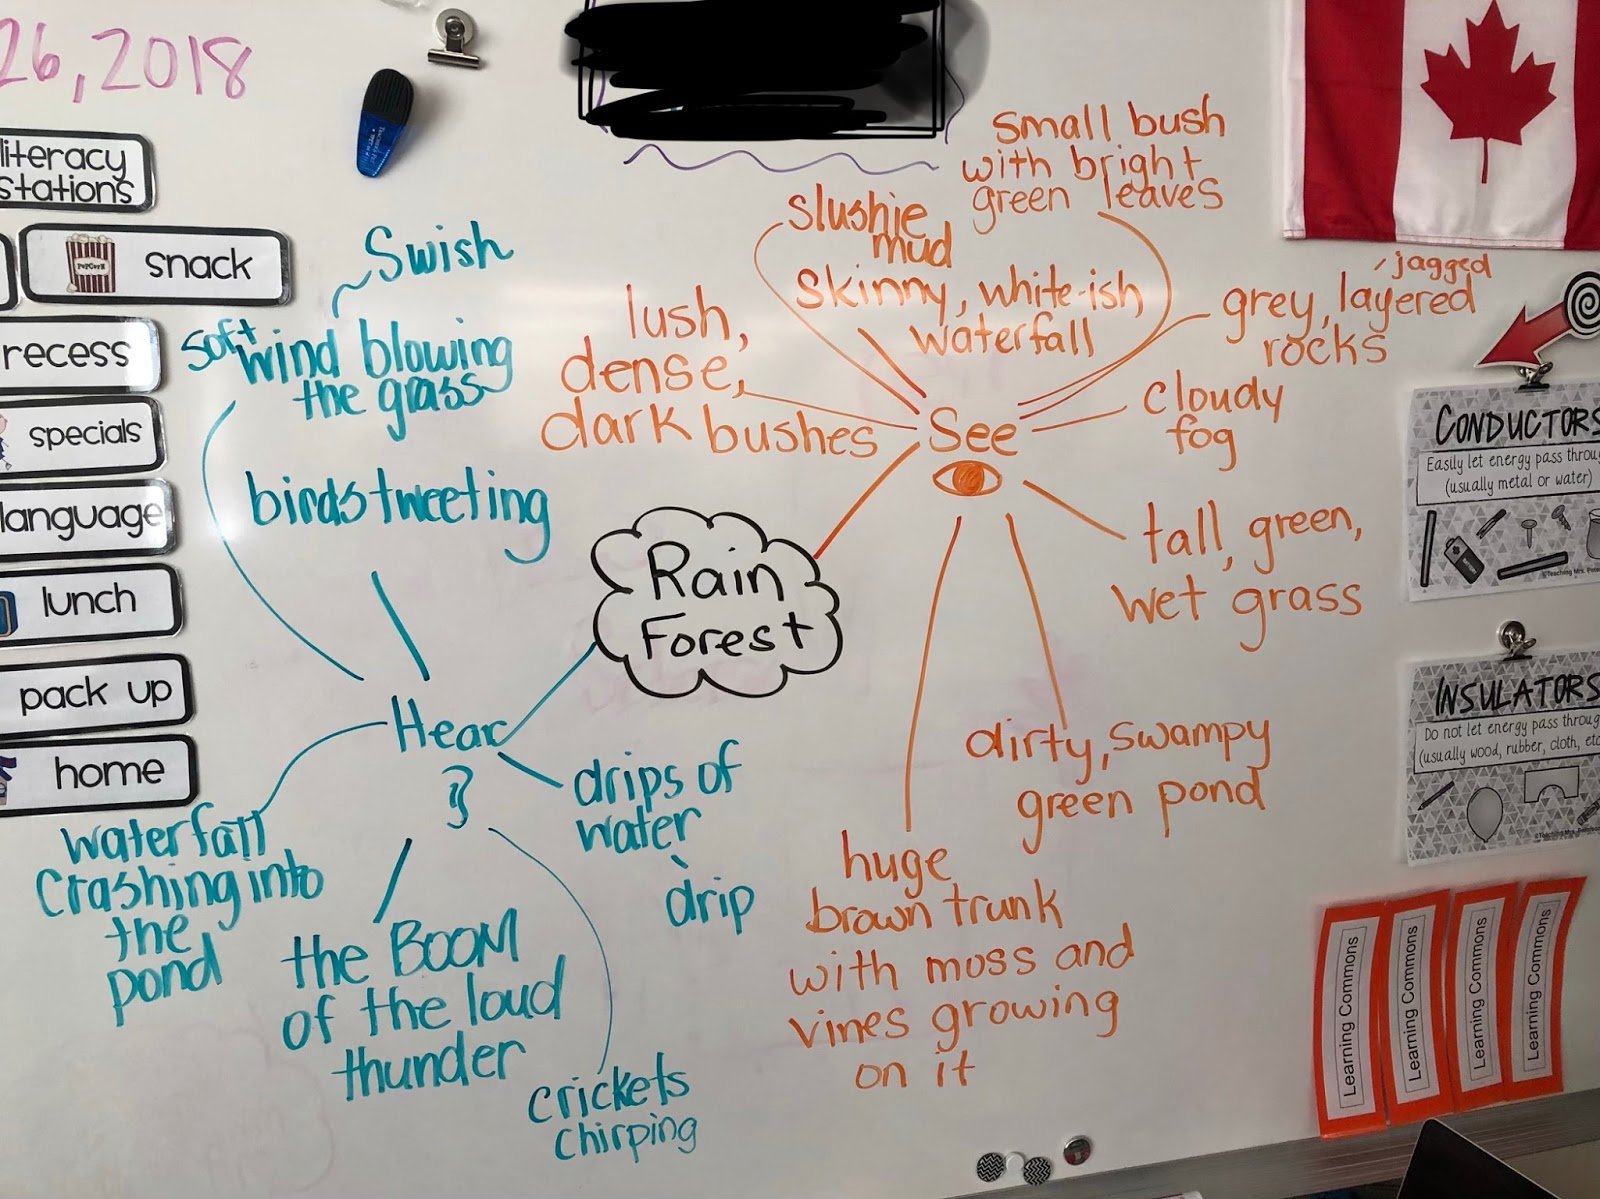 26, 2018
literacy
stations
POPCORN
snack
recess
specials
language
lunch
pack up
home
Swish
soft wind blowing
the grass
birds tweeting
Hear
waterfall
crashing into
the
pond
the BOOM
of the loud
thunder
crickets
chirping
drips of
water
drip
Rain
Forest
See
lush,
dense,
dark bushes
slushie
mud
skinny, white-ish,
waterfall
small bush
with bright
green leaves
jagged
grey, layered
rocks
cloudy
fog
tall, green,
wet grass
dirty, swampy
green pond
huge
brown trunk
with moss and
vines growing
on it
CONDUCTORS
Easily let energy pass throu
(usually metal or water)
©Teaching Mrs.
INSULATORS
Do not let energy pass throu
(usually wood, rubber, cloth, etc
Learning Commons
Learning Commons
Learning Commons
Learning Commons